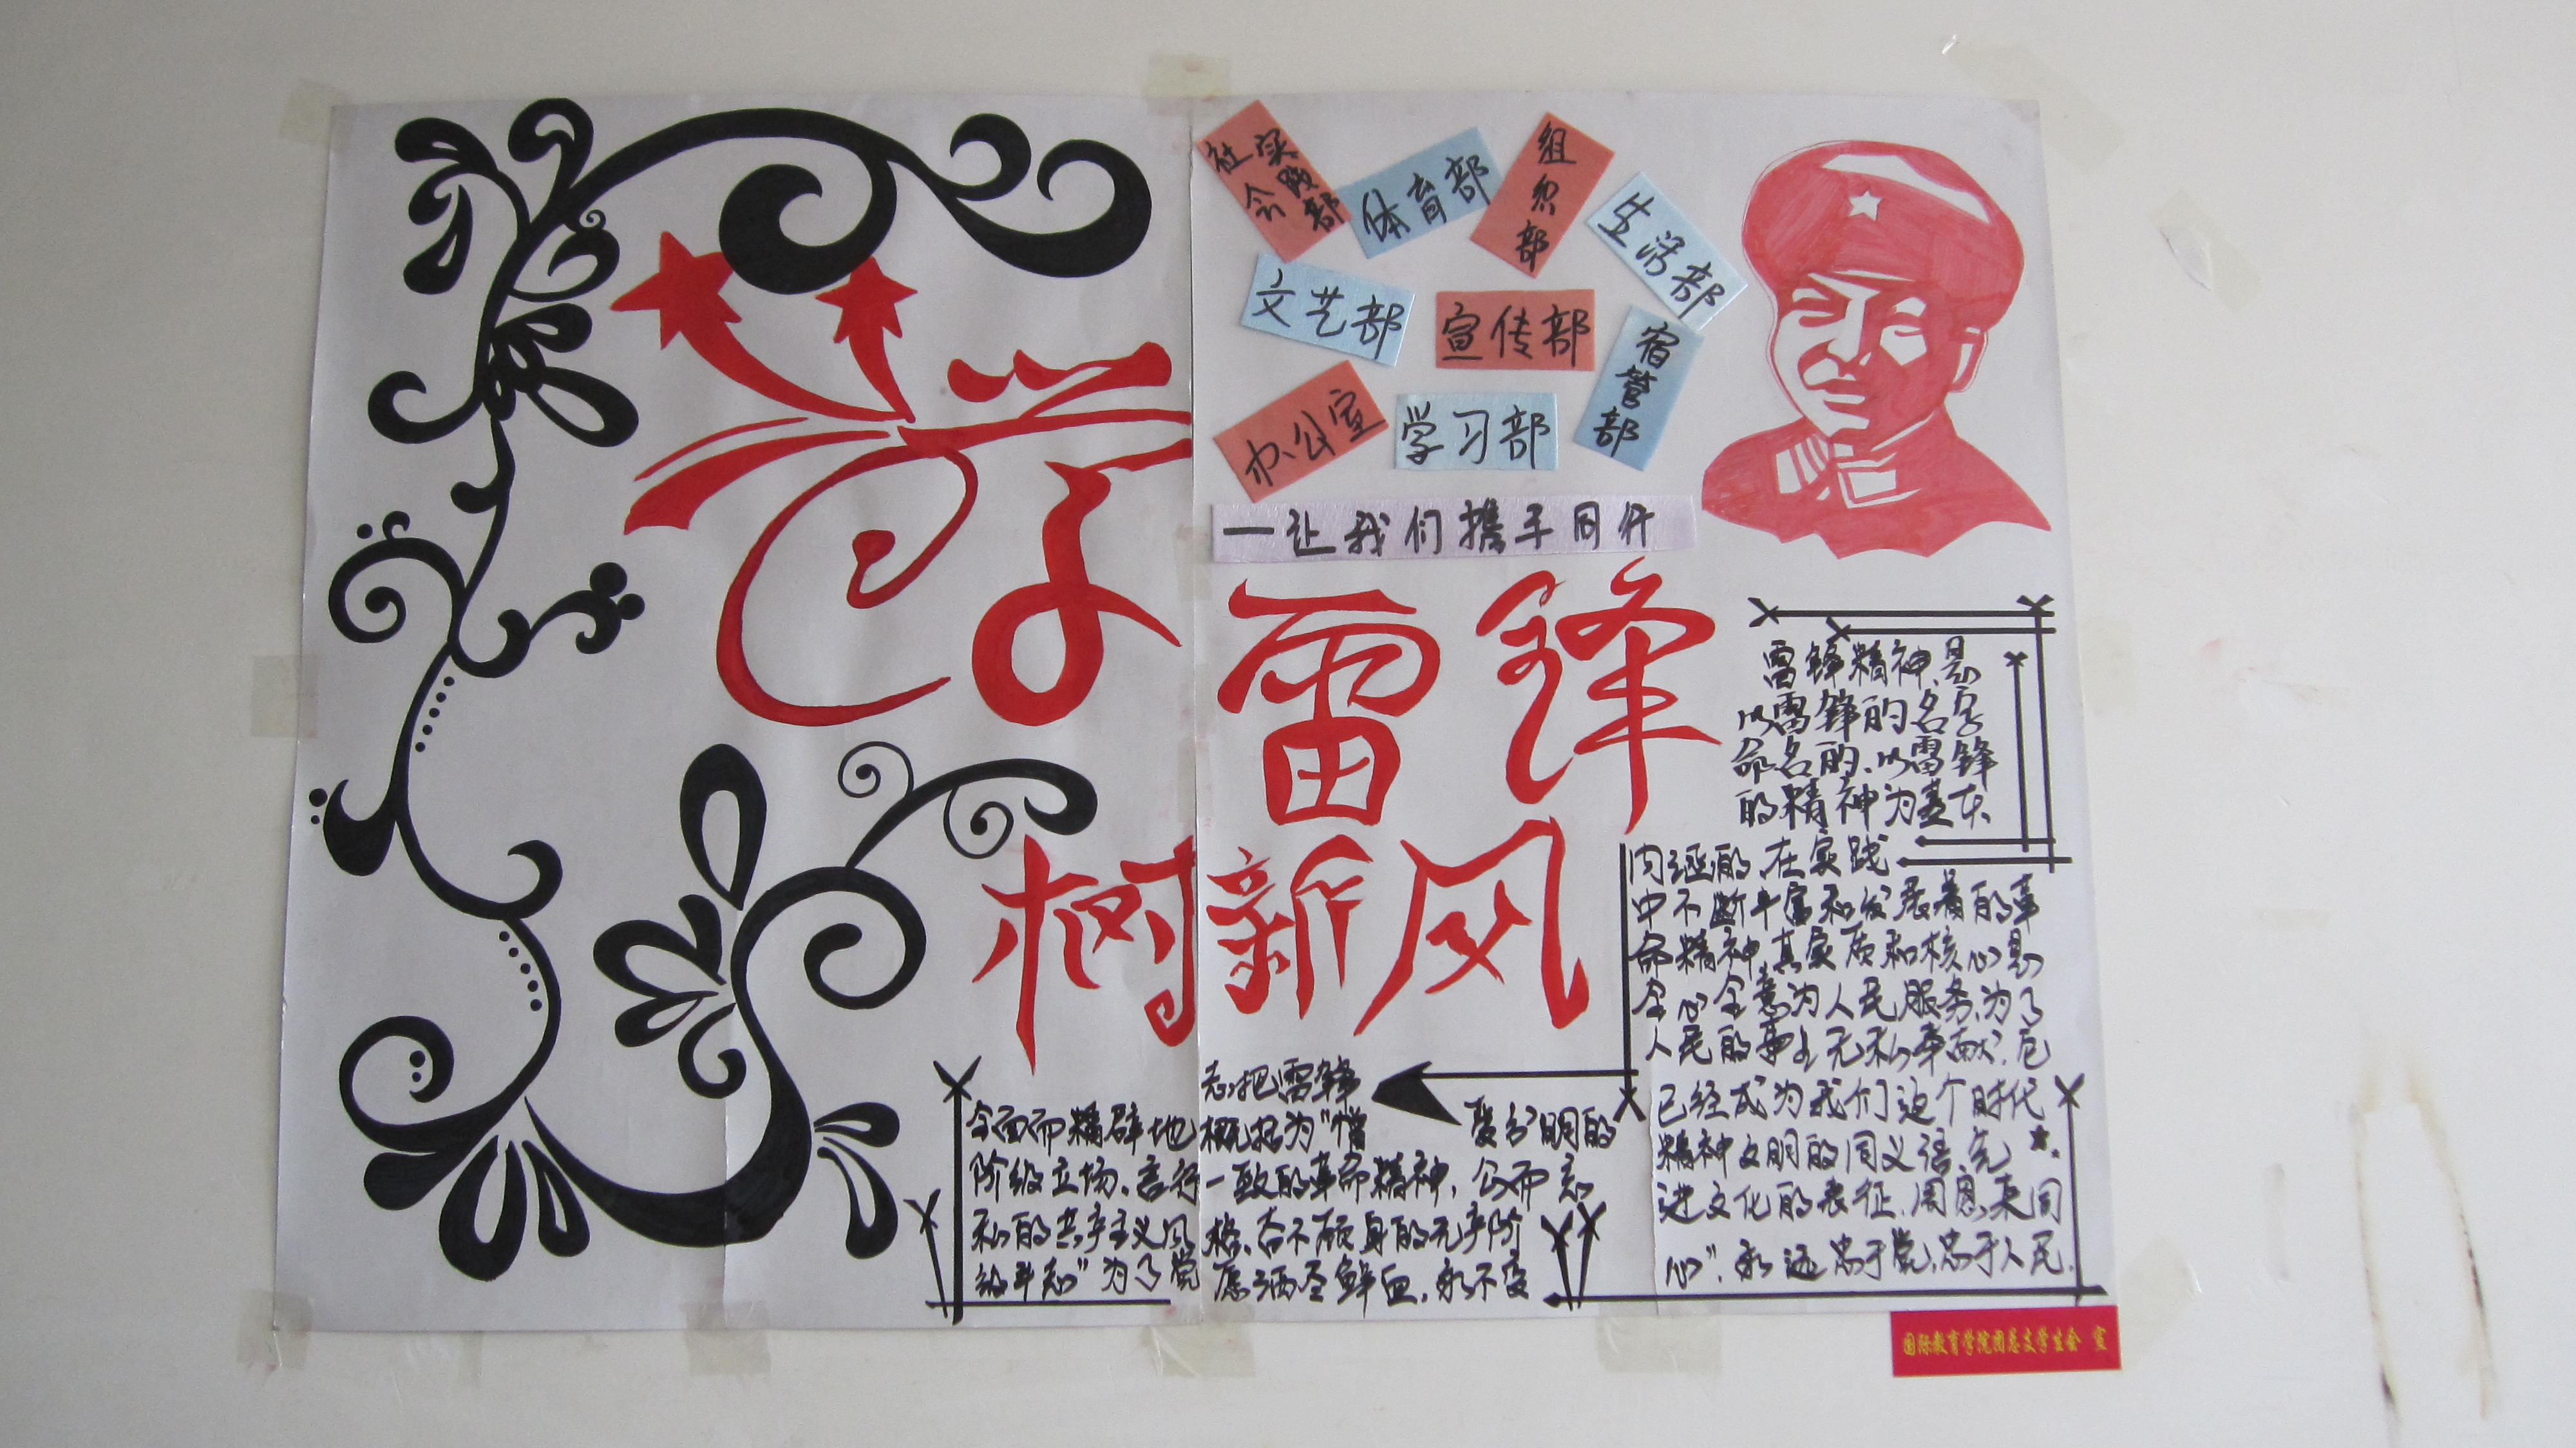 社会
实践部
体育部
组织部
生活部
文艺部
宣传部
宿管部
办公室
学习部
一让我们携手同行
学
雷锋
树新风
雷锋精神,是
以雷锋的名字
命名的、以雷锋
的精神为基本
内涵的、在实践
中不断丰富和发展着的革
命精神,其实质和核心是
全心全意为人民服务,为了
人民的事业无私奉献.它
已经成为我们这个时代
精神文明的同义语、先
进文化的表征.周恩来同
志把雷锋
全面而精辟地概括为“憎
爱分明的
阶级立场、言行一致的革命精神、公而忘
私的共产主义风格、奋不顾身的无产阶
级斗志”为了党愿洒尽鲜血,永不变
心”.永远忠于党,忠于人民.
国际教育学院团总支学生会 宣